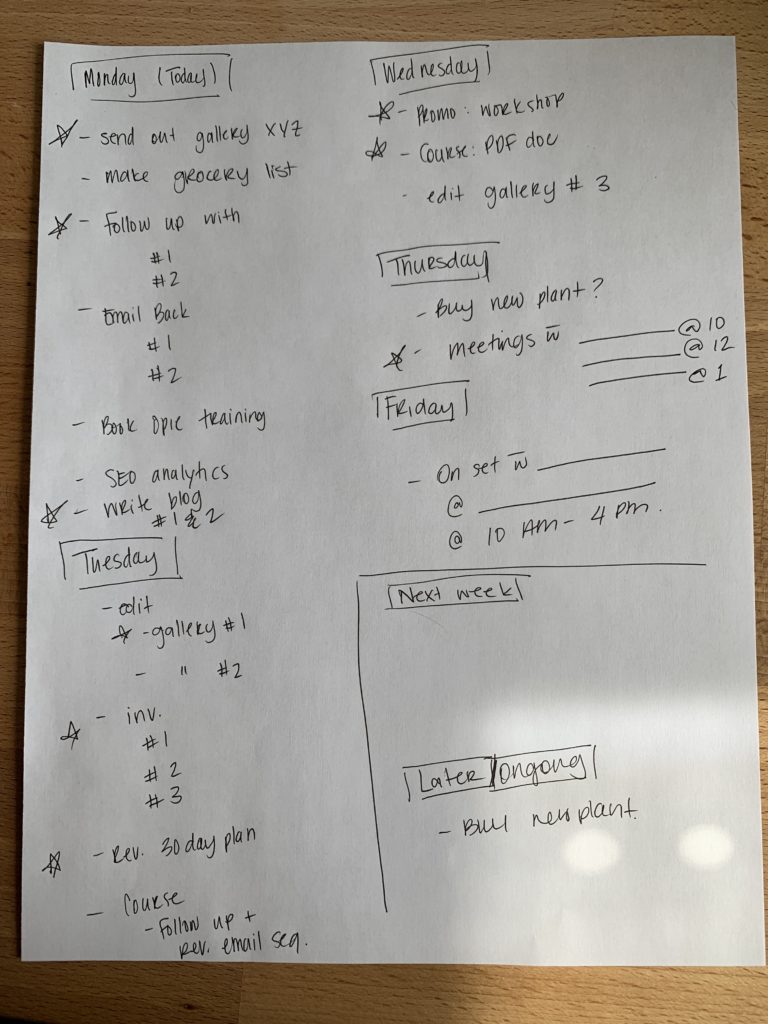 Monday (Today)
☆ - send out gallery XYZ
- make grocery list
☆ - Follow up with
#1
#2
- Email Back
#1
#2
- Book DPIC training
- SEO analytics
☆ - write blog
#1 & 2
Tuesday
- edit
☆ - gallery #1
- " #2
☆ - inv.
#1
#2
#3
☆ - Rev. 30 day plan
- Course
- Follow up +
Rev. email seq.
Wednesday
☆ - Promo: workshop
☆ - Course: PDF doc
- edit gallery #3
Thursday
- Buy new plant?
☆ - meetings w̅ ______ @ 10
______ @ 12
______ @ 1
Friday
- On set w̅ ______
@ ______
@ 10 AM - 4 pm.
Next week
Later/Ongong
- Buy new plant.